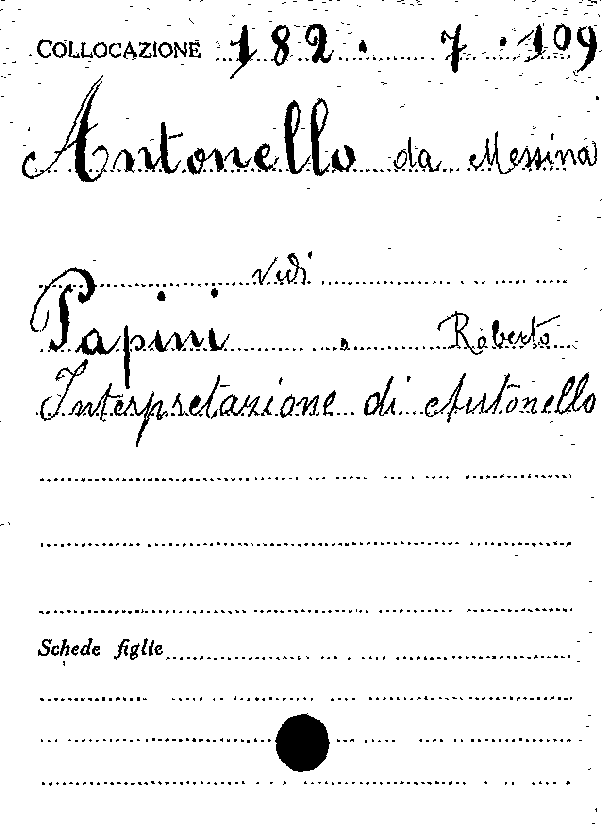 COLLOCAZIONE 182. 7.109
Antonello da Messina
vidi
Papini. Roberto
Interpretazione di Antonello
Schede figlie